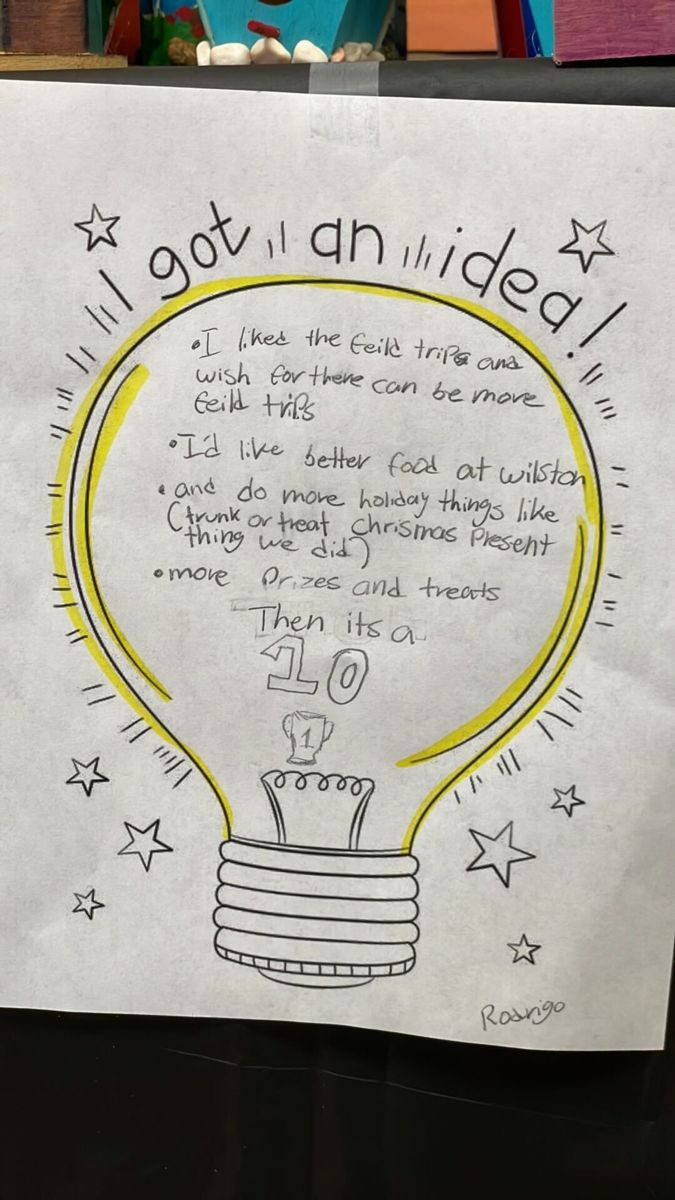 I got an idea!
•I liked the feild trips and
wish for there can be more
feild trips
•I'd like better food at wilston
• and do more holiday things like
(trunk or treat chrismas present
thing we did)
•more prizes and treats
Then its a
10
1
Rodrigo